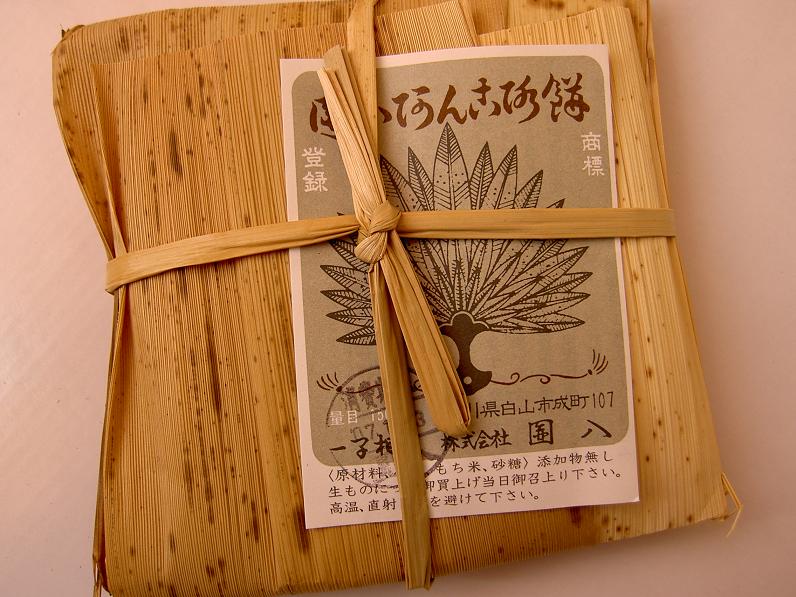 あんころ餅
登録
商標
量目
川県白山市成町107
一子相
株式会社 圓 八
〈原材料 もち米、砂糖〉添加物無し
生ものに 御買上げ当日御召上り下さい。
高温、直射 を避けて下さい。